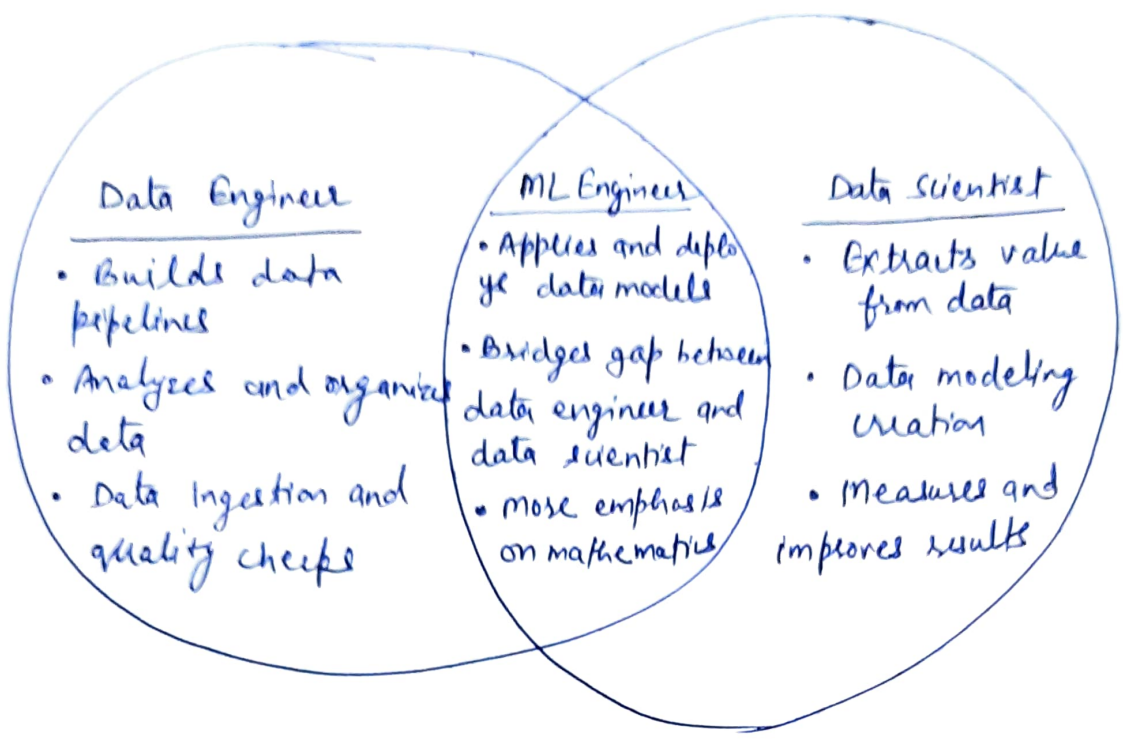 Data Engineer
• Builds data
pipelines
• Analyzes and organizes
data
• Data Ingestion and
quality checks
ML Engineer
• Applies and deplo
ys data models
• Bridges gap between
data engineer and
data scientist
• More emphasis
on mathematics
Data Scientist
• Extracts value
from data
• Data modeling
creation
• Measures and
improves results